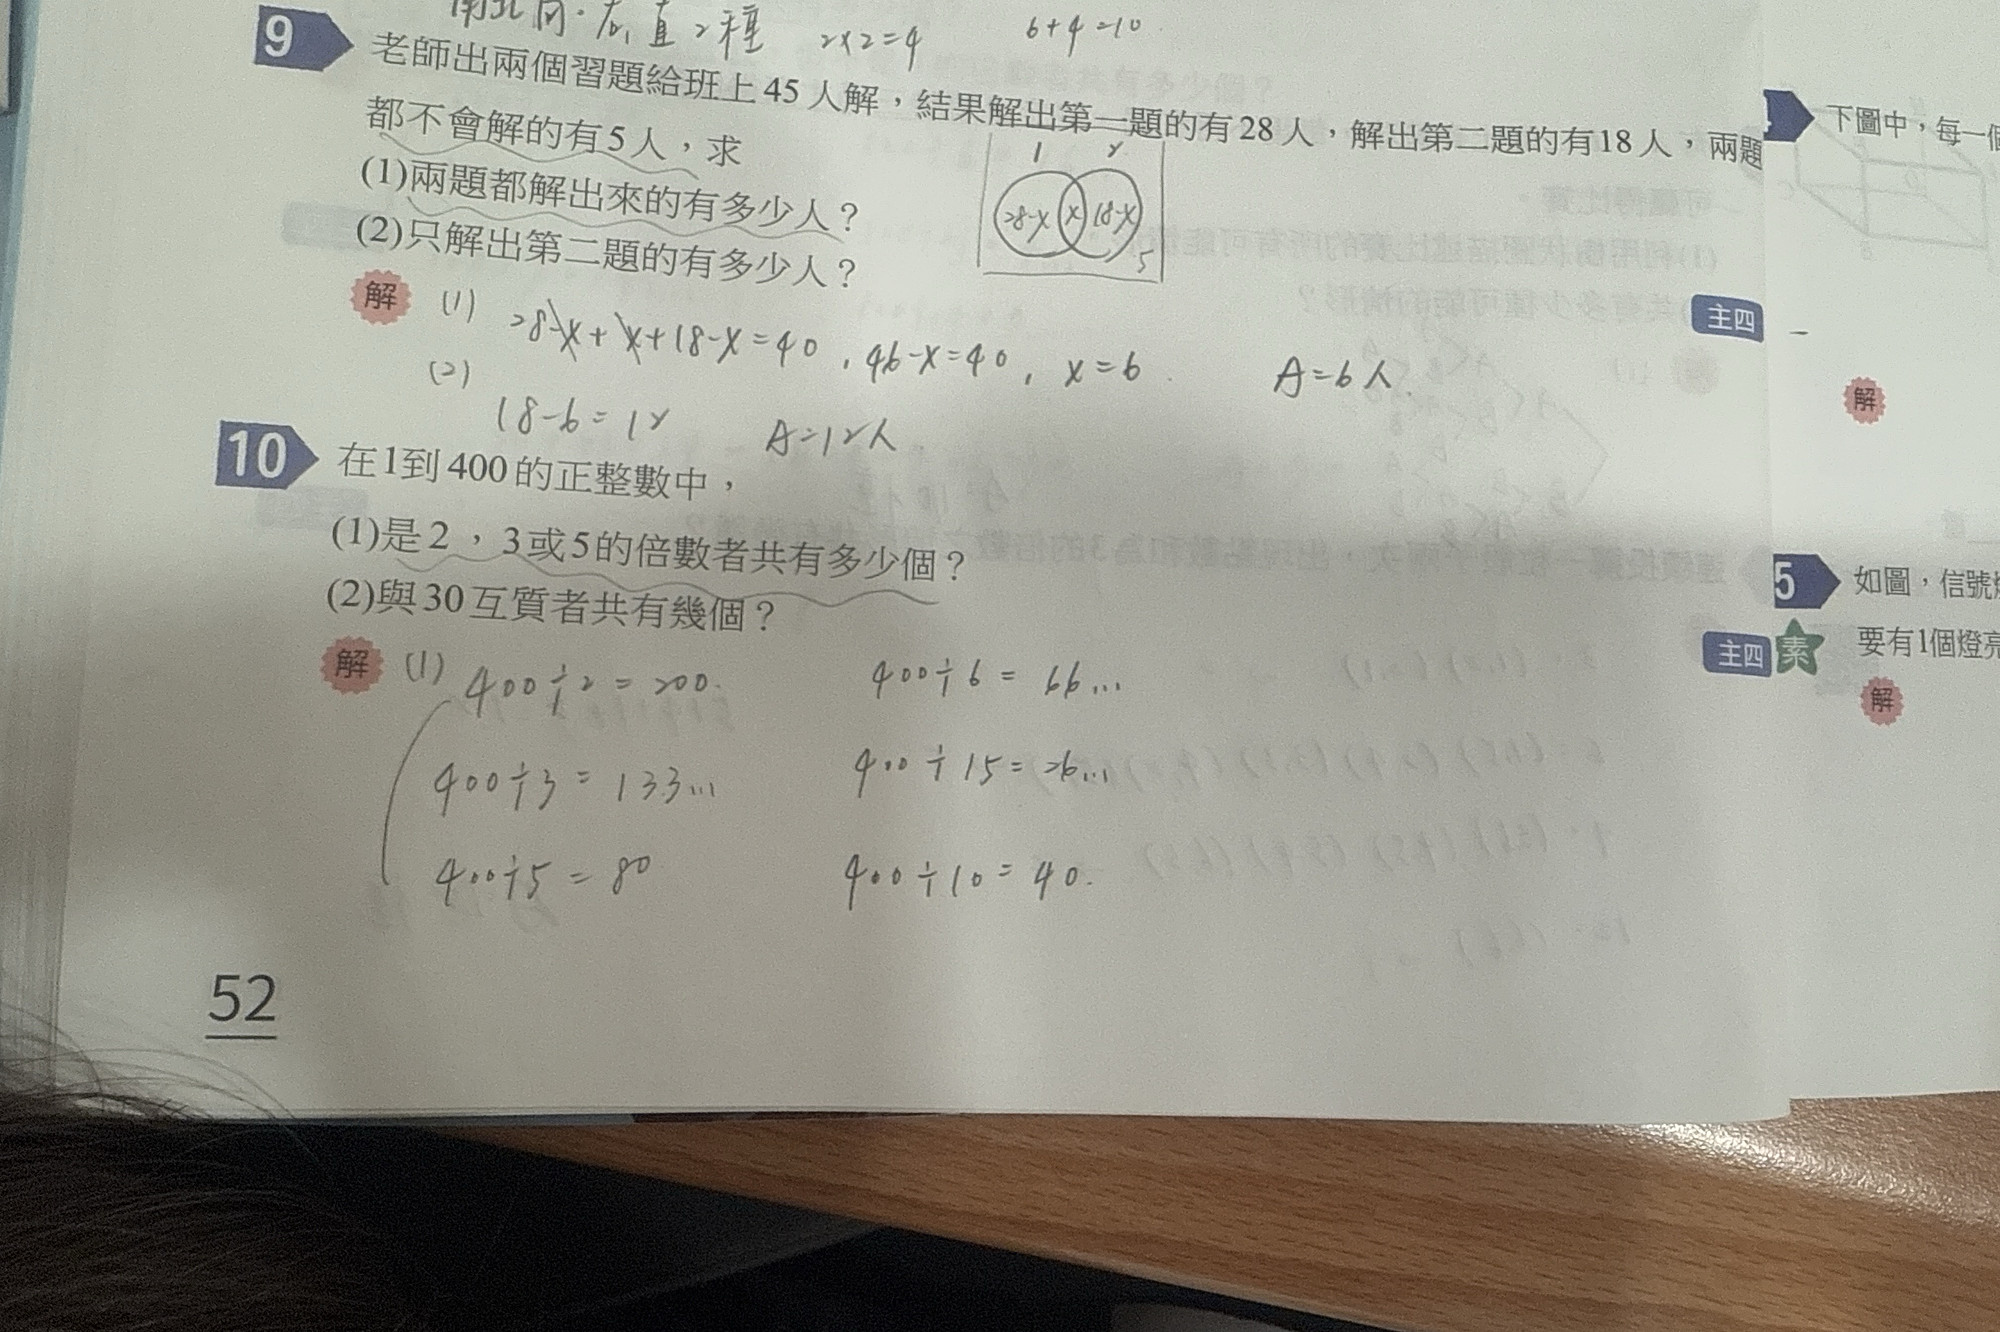 南北向．左，直2種 2×2=4 6+4=10
9 老師出兩個習題給班上45人解，結果解出第一題的有28人，解出第二題的有18人，兩題
都不會解的有5人，求
(1)兩題都解出來的有多少人？
(2)只解出第二題的有多少人？
1 2
28-x x 18-x
5
解 (1) 28-x+x+18-x=40，46-x=40，x=6 A=6人
(2) 18-6=12 A=12人
10 在1到400的正整數中，
(1)是2，3或5的倍數者共有多少個？
(2)與30互質者共有幾個？
解 (1) 400÷2=200. 400÷6=66...
400÷3=133... 400÷15=26...
400÷5=80 400÷10=40.
52
下圖中，每一個
主四
解
5 如圖，信號燈
主四 素 要有1個燈亮
解